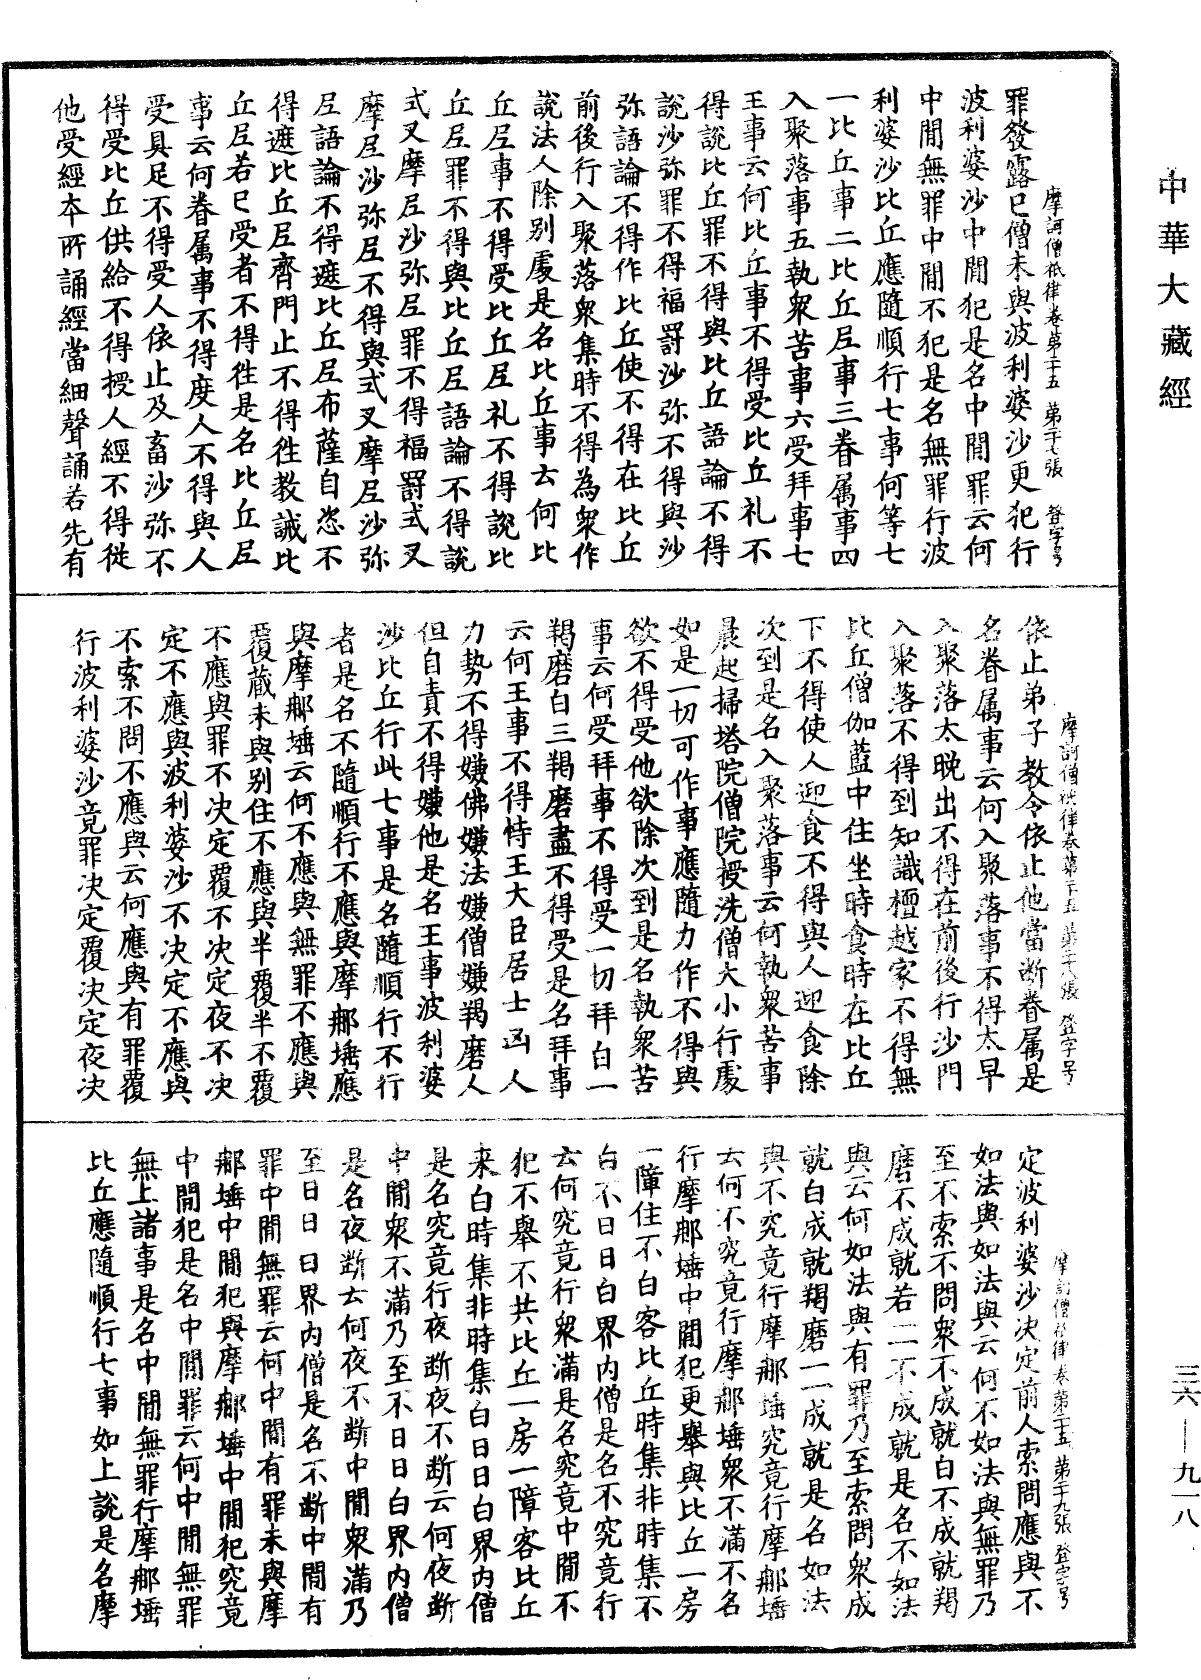 中華大藏經
摩訶僧祇律卷第二十五　第二十七張　登字号
罪發露已僧未與波利婆沙更犯行
波利婆沙中間犯是名中間罪云何
中間無罪中間不犯是名無罪行波
利婆沙比丘應隨順行七事何等七
一比丘事二比丘尼事三眷属事四
入聚落事五執衆苦事六受拜事七
王事云何比丘事不得受比丘礼不
得說比丘罪不得與比丘語論不得
說沙弥罪不得福罰沙弥不得與沙
弥語論不得作比丘使不得在比丘
前後行入聚落衆集時不得為衆作
說法人除别處是名比丘事去何比
丘尼事不得受比丘尼礼不得說比
丘尼罪不得與比丘尼語論不得説
式叉摩尼沙弥尼罪不得福罰式叉
摩尼沙弥尼不得與式叉摩尼沙弥
尼語論不得遮比丘尼布薩自恣不
得遮比丘尼齊門止不得徃教誡比
丘尼若已受者不得徃是名比丘尼
事云何眷属事不得度人不得與人
受具足不得受人依止及畜沙弥不
得受比丘供給不得授人經不得從
他受經本所誦經當細聲誦若先有
摩訶僧祇律卷第二十五　第二十八張　登字号
依止弟子教令依止他當断眷属是
名眷属事云何入聚落事不得太早
入聚落太晚出不得在前後行沙門
入聚落不得到知識檀越家不得無
比丘僧伽藍中住坐時食時在比丘
下不得使人迎食不得與人迎食除
次到是名入聚落事云何執衆苦事
晨起掃塔院僧院授洗僧大小行處
如是一切可作事應隨力作不得與
欲不得受他欲除次到是名執衆苦
事云何受拜事不得受一切拜白一
羯磨白三羯磨盡不得受是名拜事
云何王事不得恃王大臣居士凶人
力勢不得嫌佛嫌法嫌僧嫌羯磨人
但自責不得嫌他是名王事波利婆
沙比丘行此七事是名隨順行不行
者是名不隨順行不應與摩那埵應
與摩那埵云何不應與無罪不應與
覆蔵未與别住不應與半覆半不覆
不應與罪不决定覆不决定夜不决
定不應與波利婆沙不决定不應與
不索不問不應與云何應與有罪覆
行波利婆沙竟罪决定覆决定夜决
摩訶僧祇律卷第二十五　第二十九張　登字号
定波利婆沙决定前人索問應與不
如法與如法與云何不如法與無罪乃
至不索不問衆不成就白不成就羯
磨不成就若一一不成就是名不如法
與云何如法與有罪乃至索問衆成
就白成就羯磨一一成就是名如法
與不究竟行摩那埵究竟行摩那埵
去何不究竟行摩那埵衆不滿不名
行摩那埵中間犯更舉與比丘一房
一障住不白客比丘時集非時集不
白不日日白界内僧是名不究竟行
云何究竟行衆滿是名究竟中間不
犯不舉不共比丘一房一障客比丘
来白時集非時集白日日白界内僧
是名究竟行夜断夜不断云何夜断
中間衆不滿乃至不日日白界内僧
是名夜断去何夜不断中間衆滿乃
至日日白界内僧是名不断中間有
罪中間無罪云何中間有罪未與摩
那埵中間犯與摩那埵中間犯究竟
中間犯是名中間罪云何中間無罪
無上諸事是名中間無罪行摩那埵
比丘應隨順行七事如上說是名摩
三六—九一八